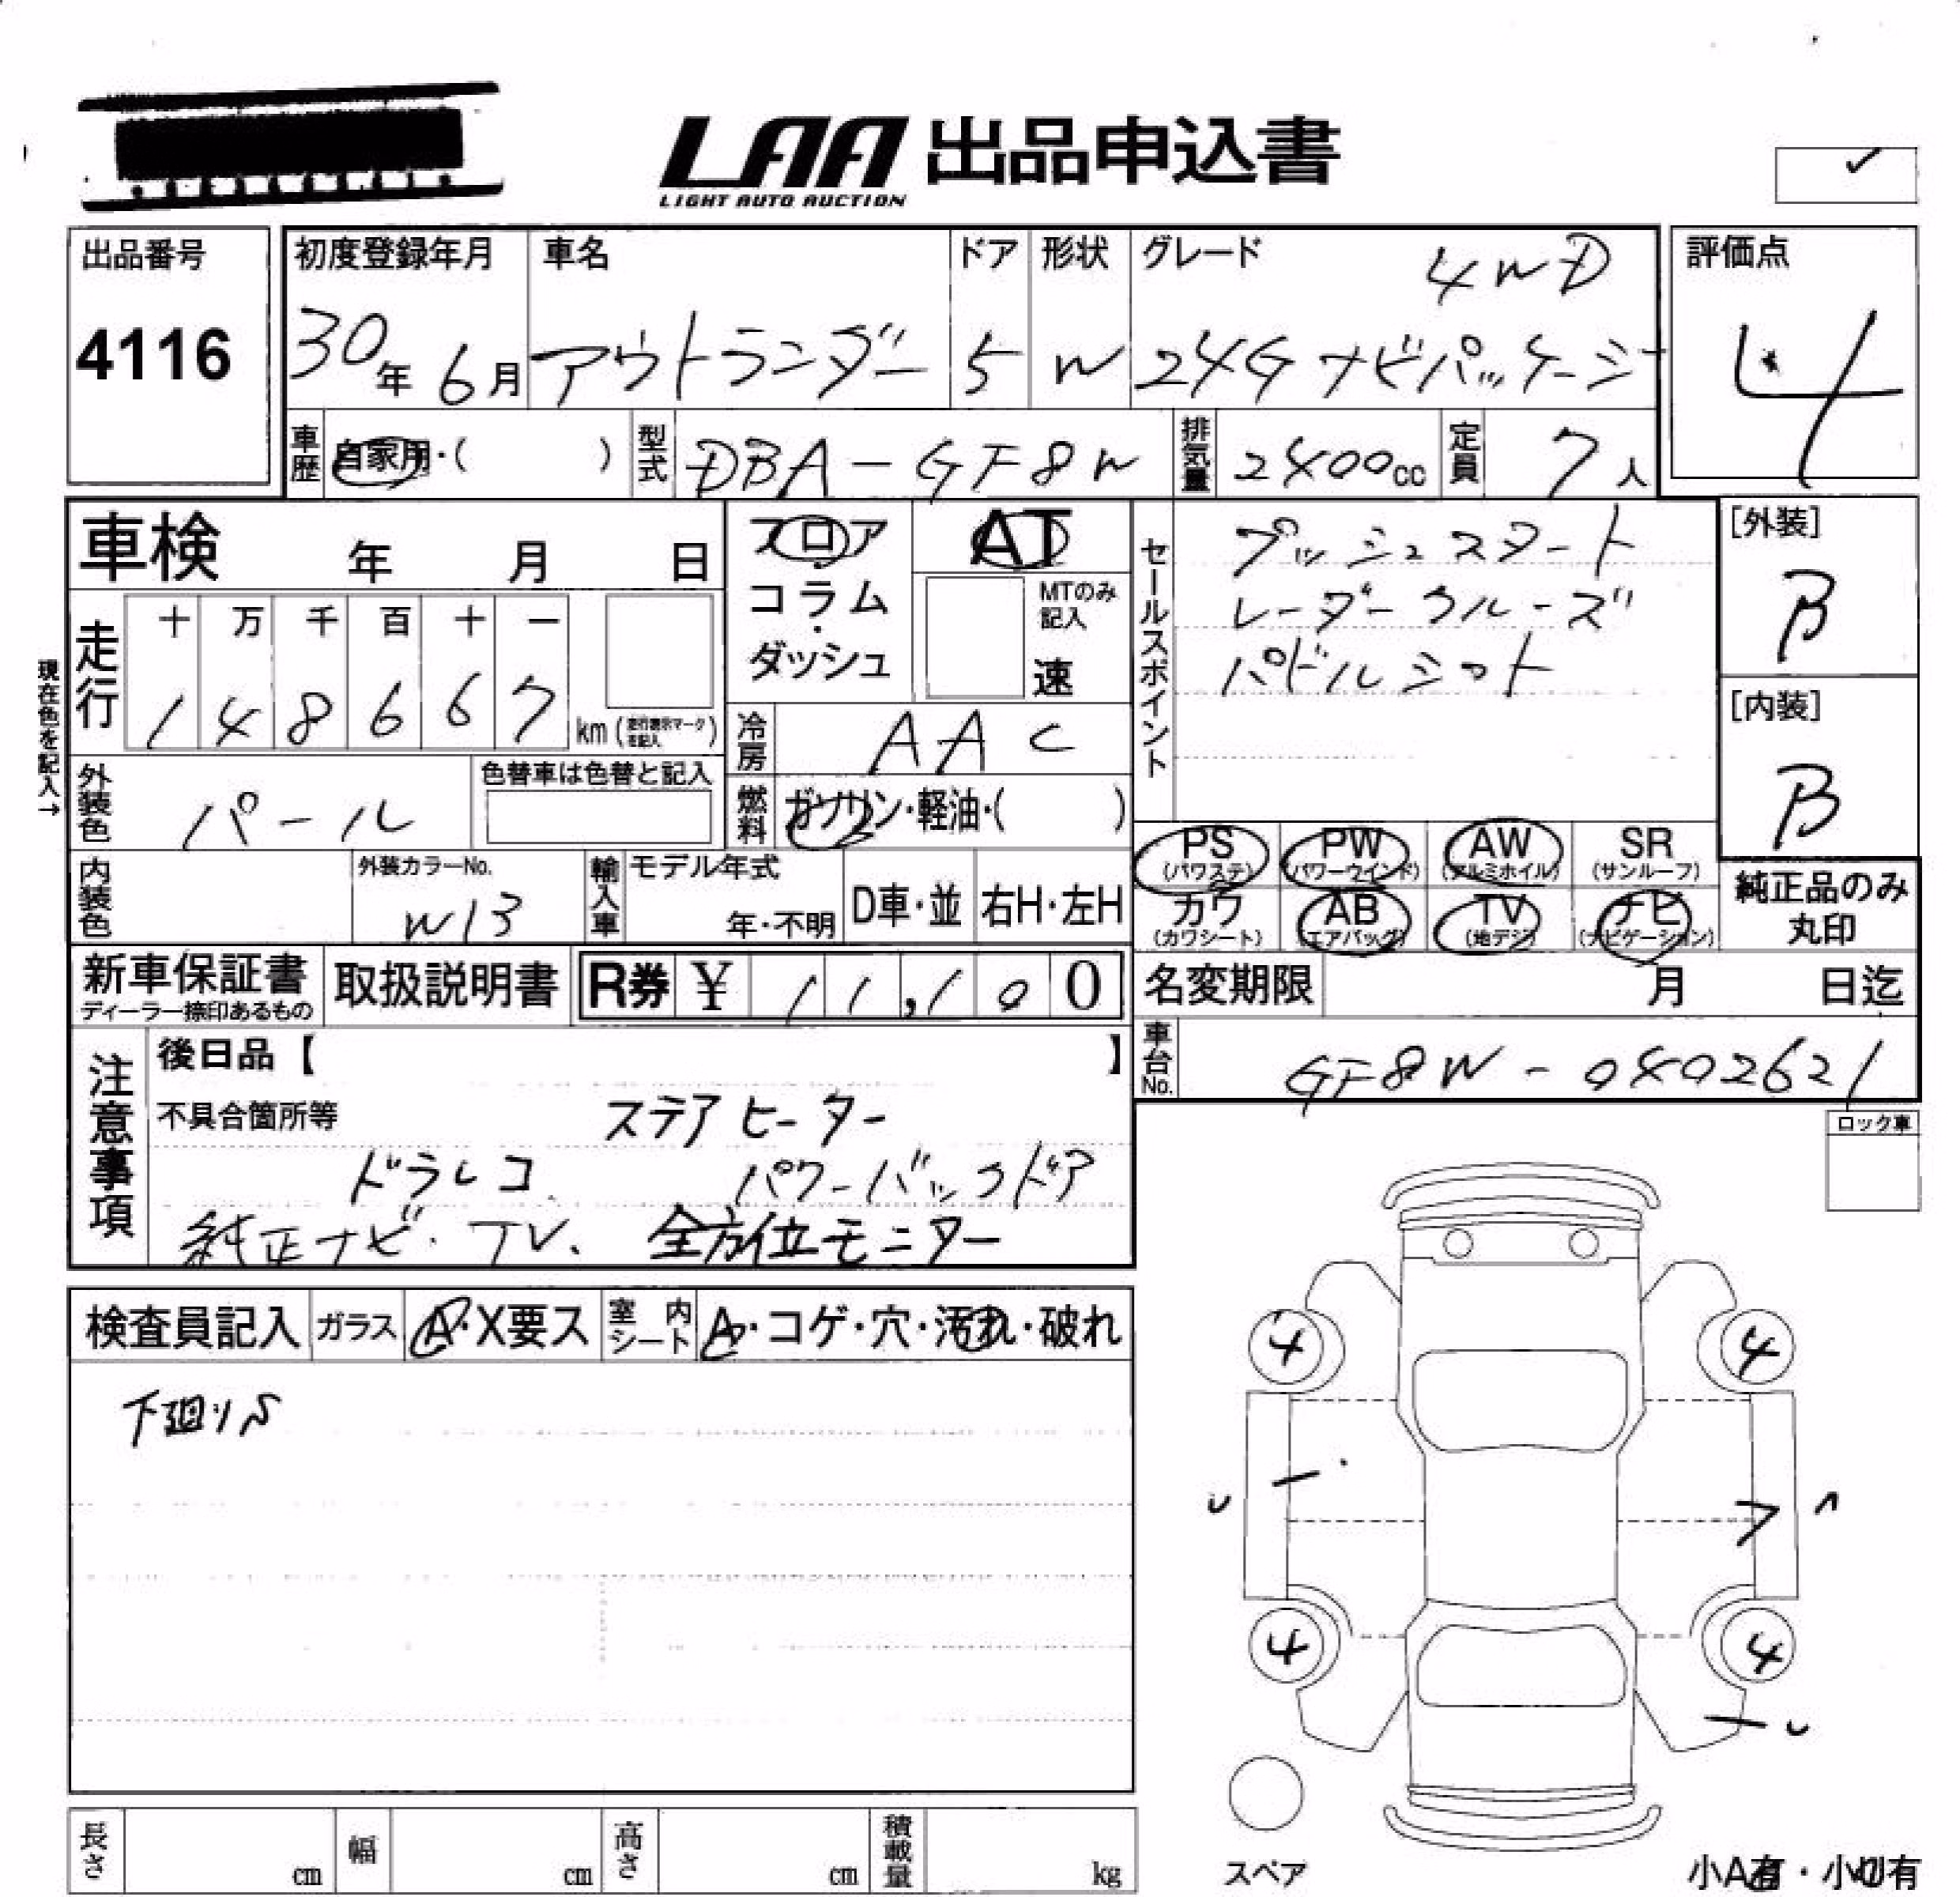 LAA 出品申込書
LIGHT AUTO AUCTION
出品番号
4116
初度登録年月
30年 6月
車名
アウトランダー
ドア
5
形状
W
グレード
4WD
24G ナビパッケージ
評価点
4
車歴 自家用・( )
型式 DBA-GF8W
排気量 2400cc
定員 7人
車検 年 月 日
フロア
コラム
・
ダッシュ
AT
MTのみ
記入
速
セールスポイント
プッシュスタート
レーダークルーズ
パドルシフト
[外装]
B
[内装]
B
現在色を記入→
走行
十 万 千 百 十 一
1 4 8 6 6 7 km (走行表示マークを記入)
冷房 AAC
外装色 パール
色替車は色替と記入
燃料 ガソリン・軽油・( )
PS (パワステ)
PW (パワーウインド)
AW (アルミホイル)
SR (サンルーフ)
カワ (カワシート)
AB (エアバッグ)
TV (地デジ)
ナビ (ナビゲーション)
純正品のみ
丸印
内装色
外装カラーNo.
W13
輸入車
モデル年式
年・不明
D車・並
右H・左H
新車保証書
ディーラー捺印あるもの
取扱説明書
R券 ¥ 11,100
名変期限 月 日迄
車台No. GF8W-0402621
注意事項
後日品【 】
不具合箇所等 ステアヒーター
ドラレコ パワーバックドア
純正ナビ・TV、全方位モニター
ロック車
検査員記入
ガラス A・X要ス
室内シート A・コゲ・穴・汚れ・破れ
下廻りS
4 4
4 4
スペア
小A有・小U有
長さ cm
幅 cm
高さ cm
積載量 kg